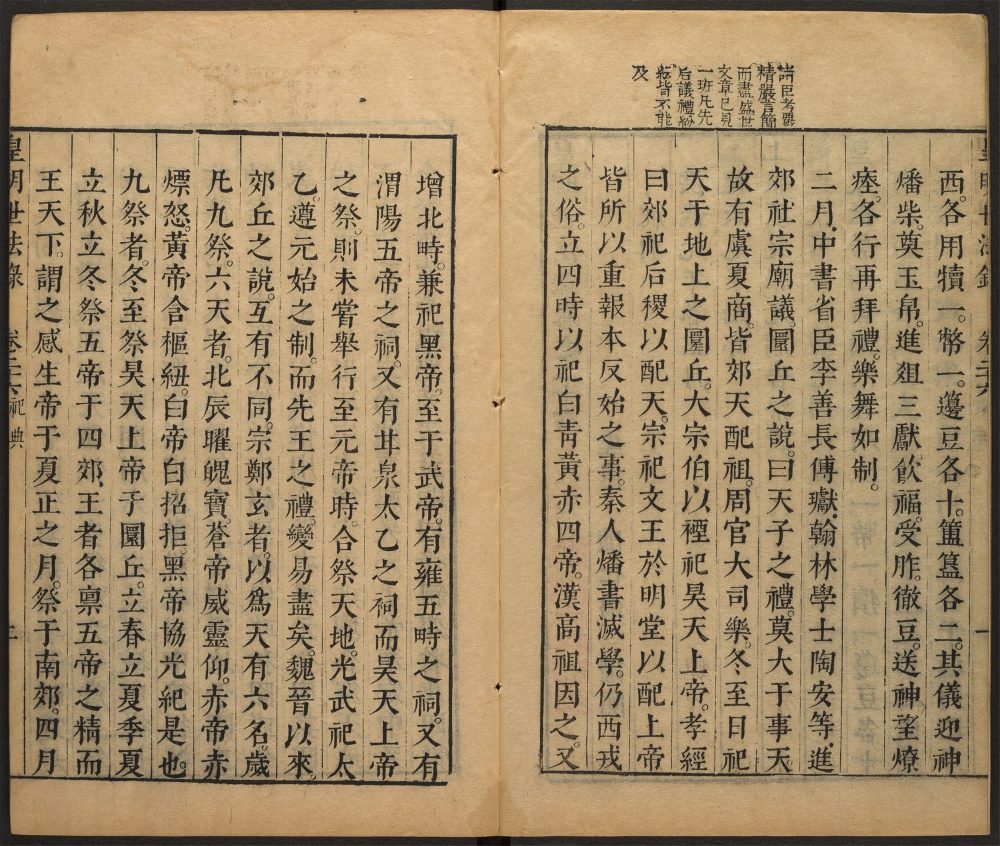 諸臣考覈
精嚴言簡
而盡盛世
文章已見
一班凡先
后議禮
皆不能
及
西。各用犢一。幣一。籩豆各十。簠簋各二。其儀迎神
燔柴。奠玉帛。進俎三獻飲福。受胙。徹豆。送神。望燎
瘞。各行再拜禮。樂舞如制。
二月。中書省臣李善長傅瓛。翰林學士陶安等。進
郊社宗廟議。圜丘之說。曰天子之禮。莫大于事天
故有虞夏商。皆郊天配祖。周官大司樂。冬至日祀
天于地上之圜丘。大宗伯以禋祀昊天上帝。孝經
曰郊祀后稷以配天。宗祀文王於明堂以配上帝
皆所以重報本反始之事。秦人燔書滅學。仍西戎
之俗。立四時以祀白青黃赤四帝。漢高祖因之。又
增北畤。兼祀黑帝。至于武帝。有雍五畤之祠。又有
渭陽五帝之祠。又有甘泉太乙之祠而昊天上帝
之祭。則未嘗舉行至元帝時。合祭天地。光武祀太
乙。遵元始之制。而先王之禮。變易盡矣。魏晉以來。
郊丘之說。互有不同。宗鄭玄者。以爲天有六名。歲
凡九祭。六天者。北辰曜魄寶。蒼帝威靈仰。赤帝赤
熛怒。黃帝含樞紐。白帝白招拒。黑帝協光紀是也。
九祭者。冬至祭昊天上帝于圜丘。立春立夏季夏
立秋立冬祭五帝于四郊。王者各稟五帝之精而
王天下。謂之感生帝于夏正之月。祭于南郊。四月
皇明世法錄 卷二六 祀典